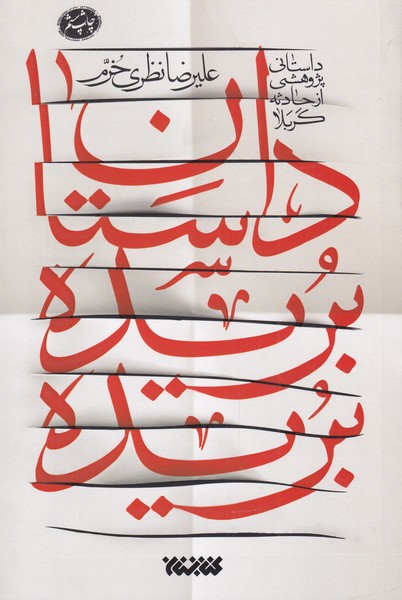 چاپ ششم
علیرضا نظری خُرّم
داستانی
پژوهشی
از حادثه
کربلا
داستان
بُریده
بُریده
کتابستان